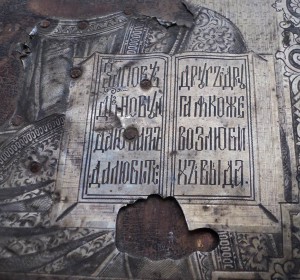 ЗАПОВѢ
ДЬ НОВꙋЮ
ДАЮ ВАМ
ДА ЛЮБИТЕ
ДРꙋГЪ ДРꙋ
ГА ꙖКОЖЕ
ВОЗЛЮБИ
ХЪ ВЫ ДА.